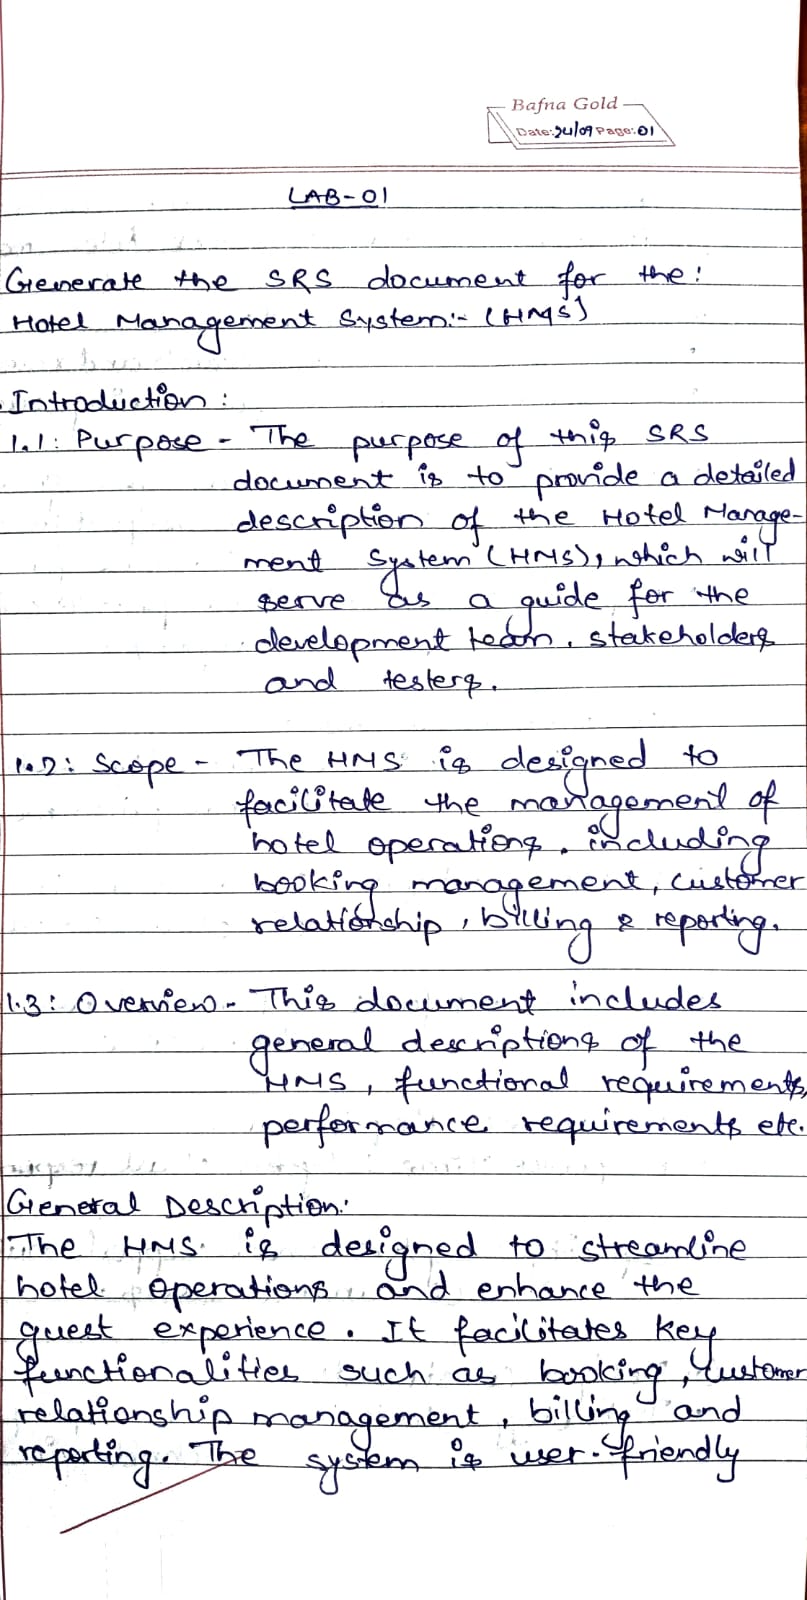 Bafna Gold
Date: 24/09 Page: 01
LAB-01
Generate the SRS document for the:
Hotel Management System:- (HMS)
Introduction :
1.1: Purpose - The purpose of this SRS
document is to provide a detailed
description of the Hotel Manage-
ment System (HMS), which will
serve as a guide for the
development team, stakeholders
and testers.
1.2: Scope - The HMS is designed to
facilitate the management of
hotel operations, including
booking management, customer
relationship, billing & reporting.
1.3: Overview - This document includes
general descriptions of the
HMS, functional requirements,
performance requirements etc.
General Description:
The HMS is designed to streamline
hotel operations and enhance the
guest experience. It facilitates key
functionalities such as booking, customer
relationship management, billing and
reporting. The system is user-friendly